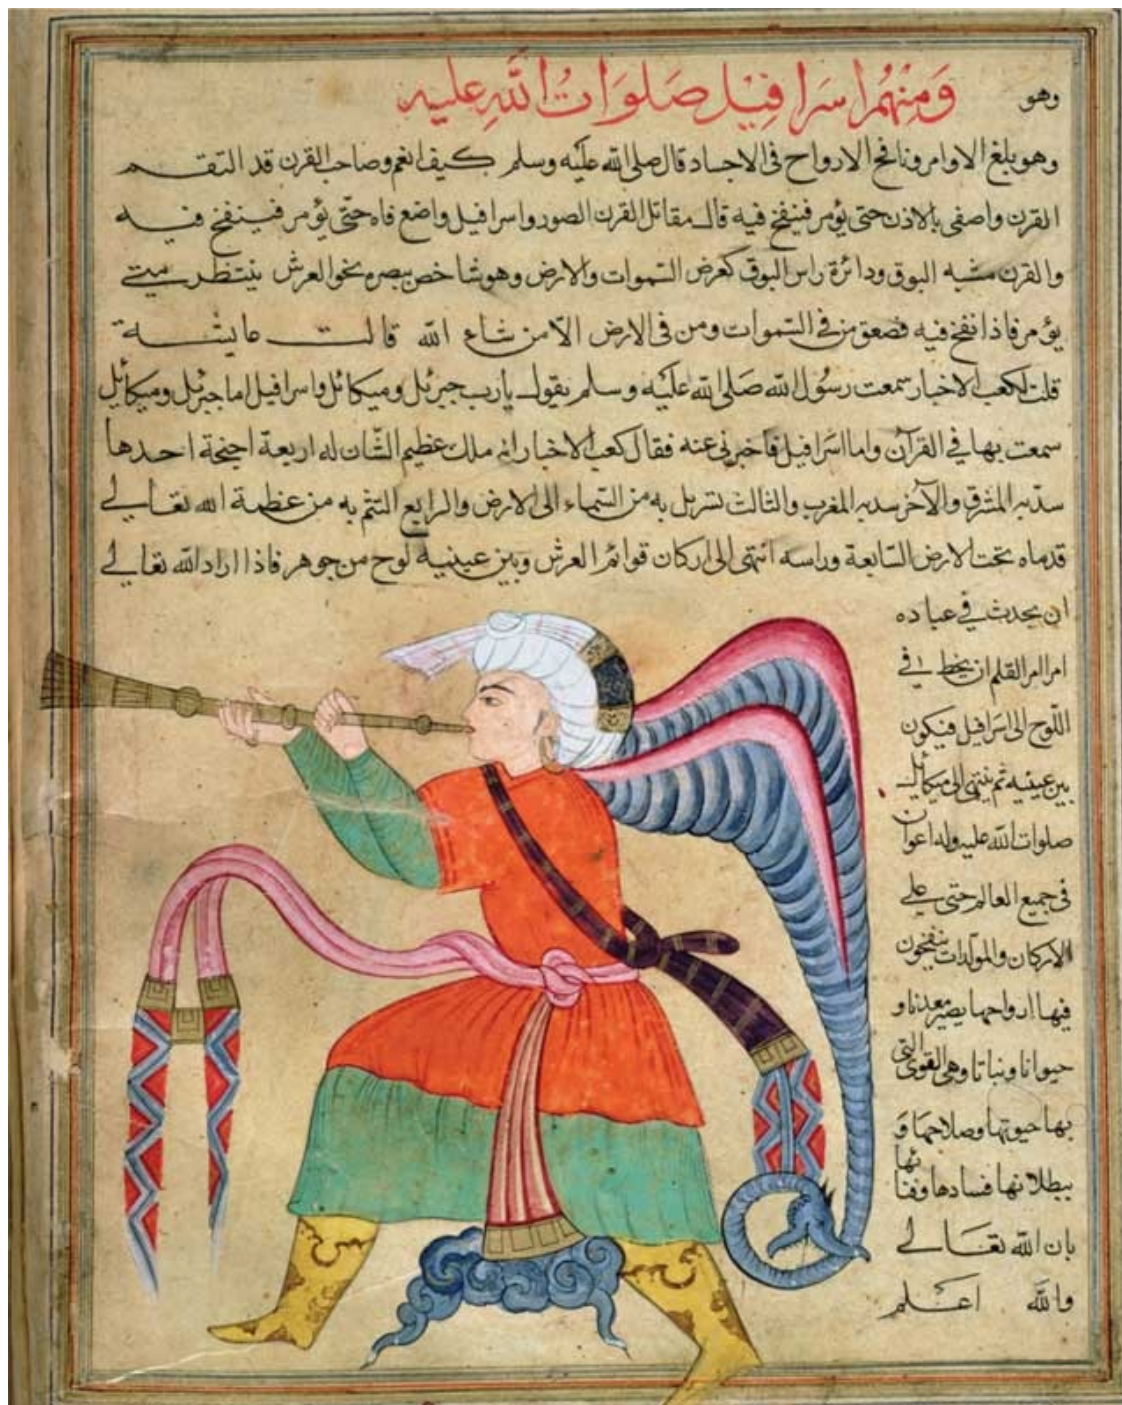 وَمِنْهُم اسرَافِيل صَلَوَاتُ اللَّهِ عليه
وهو
وهو يبلغ الاوامر ونافخ الارواح فى الاجساد قال صلى الله عليه وسلم كيف انعم وصاحب القرن قد التقم
القرن واصغى بالاذن حتى يؤمر فينفخ فيه قال مقاتل القرن الصور واسرافيل واضع فاه حتى يؤمر فينفخ فيه
والقرن مشبه البوق ودائرة راس البوق كعرض السموات والارض وهو شاخص ببصره نحو العرش ينتظر متى
يؤمر فاذا نفخ فيه فصعق من فى السموات ومن فى الارض الا من شاء الله قالت عايشة
قلت لكعب الاخبار سمعت رسول الله صلى الله عليه وسلم يقول يارب جبرئل وميكائل واسرافيل اما جبرئل وميكائل
سمعت بها في القرآن واما اسرافيل فاخبرنى عنه فقال كعب الاخبار انه ملك عظيم الشان له اربعة اجنحة احدها
سد به المشرق والآخر سد به المغرب والثالث تسربل به من السماء الى الارض والرابع التثم به من عظمة الله تعالى
قدماه تحت الارض السابعة وراسه انتهى الى اركان قوائم العرش وبين عينيه لوح من جوهر فاذا اراد الله تعالى
ان يحدث في عباده
امرا امر القلم ان يخط في
اللوح الى اسرافيل فيكون
بين عينيه ثم ينتهى الى ميكائل
صلوات الله عليه وله اعوان
فى جميع العالم حتى على
الاركان والمولدات ينفخون
فيها ارواحها يصير معدنا و
حيوانا ونباتا وهى القوى التى
بها حيوتها وصلاحها و
ببطلانها فسادها وفنائها
بان الله تعالى
والله اعلم